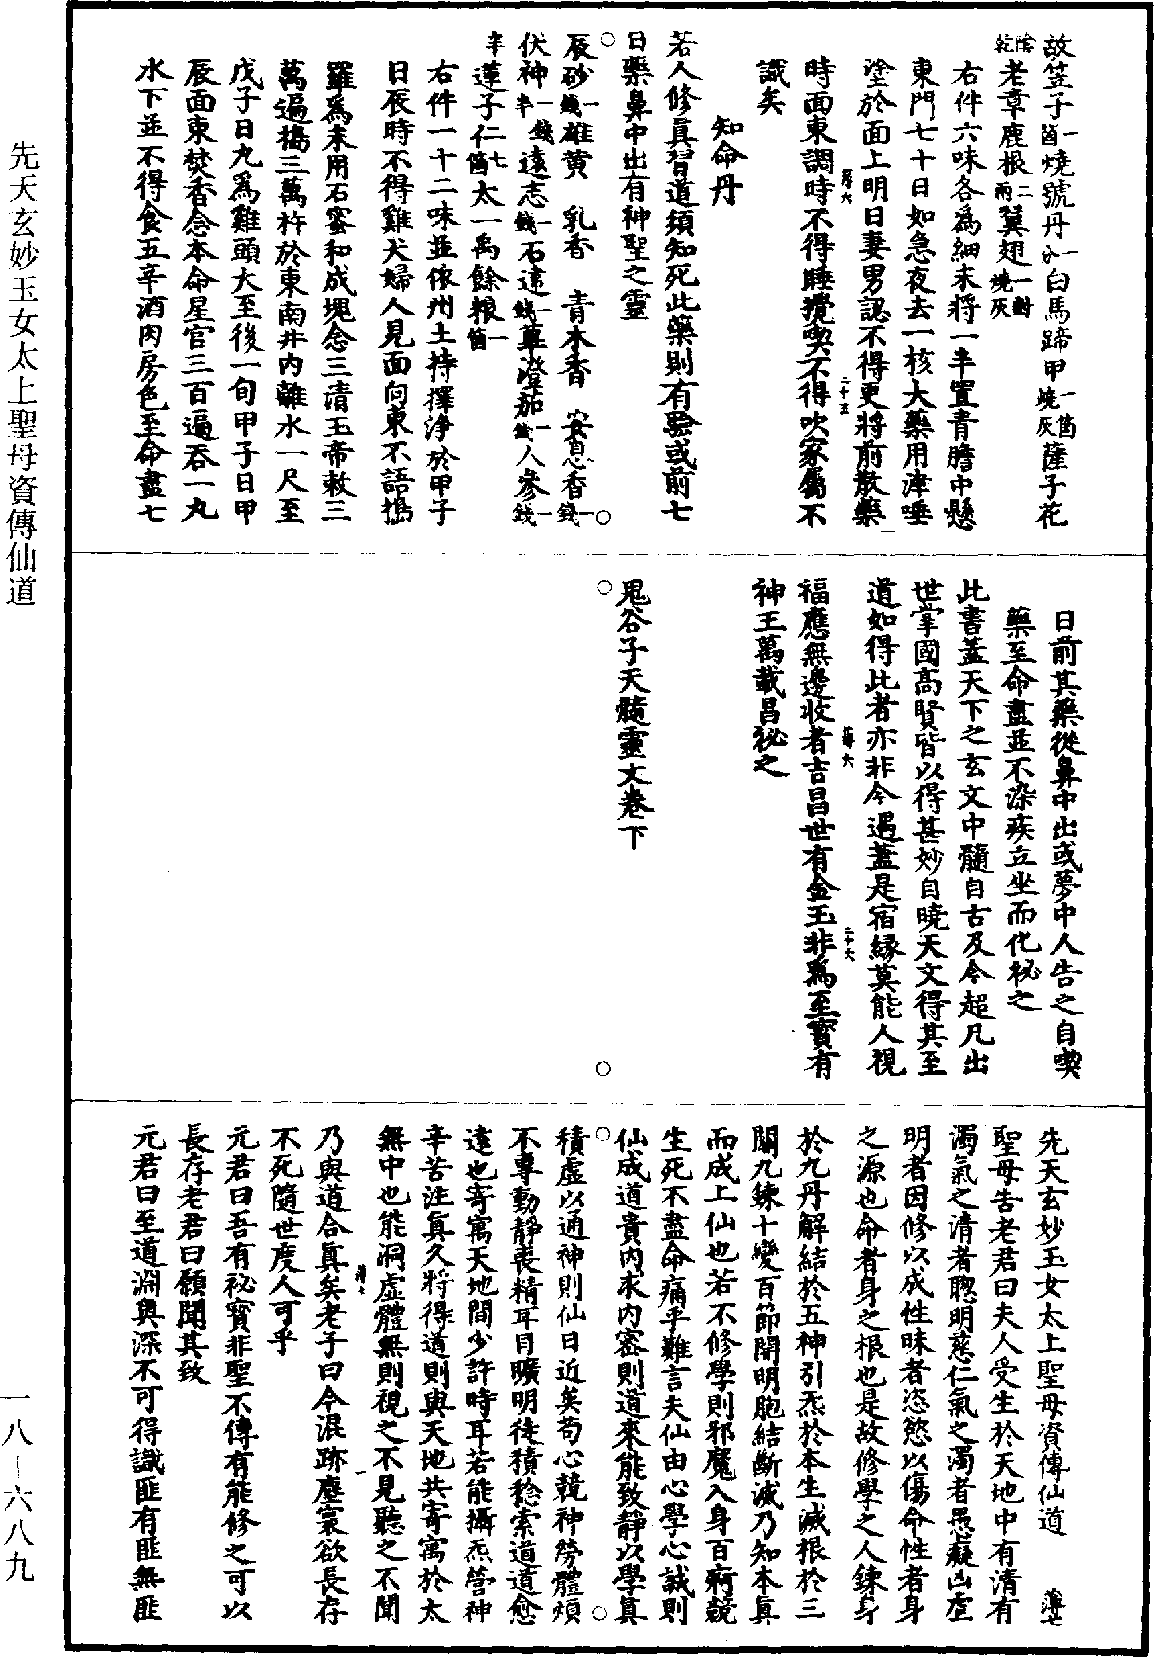 故笠子一箇燒號丹一分白馬蹄甲一箇燒灰薩子花
陰乾老章鹿根二兩翼翅一對燒灰
右件六味各為細末將一半置青膽中懸
東門七十日如急夜去一核大藥用津唾
塗於面上明日妻男認不得更將前散藥
時面東調時不得睡攪喫不得吹家屬不
識矣
知命丹
若人修真習道須知死此藥則有驗或前七
日藥鼻中出有神聖之靈
辰砂一錢雄黃 乳香 青木香 安息香一錢
伏神一錢半遠志一錢石遠一錢蓽澄茄一錢人參一錢
半蓮子仁二七箇太一禹餘粮一箇
右件一十二味並依州土持擇淨於甲子
日辰時不得雞犬婦人見面向東不語搗
羅為末用石蜜和成塊念三清玉帝敕三
萬遍搗三萬杵於東南井內離水一尺至
戊子日丸為雞頭大至後一旬甲子日甲
辰面東焚香念本命星官三百遍吞一丸
水下並不得食五辛酒肉房色至命盡七
日前其藥從鼻中出或夢中人告之自喫
藥至命盡並不染疾立坐而化祕之
此書蓋天下之玄文中髓自古及今超凡出
世掌國高賢皆以得甚妙自曉天文得其至
道如得此者亦非今遇蓋是宿緣莫能人視
福應無邊收者吉昌世有金玉非為至寶有
神王萬載昌祕之
鬼谷子天髓靈文卷下
先天玄妙玉女太上聖母資傳仙道 薄七
聖母告老君曰夫人受生於天地中有清有
濁氣之清者聰明慈仁氣之濁者愚癡凶虐
明者因修以成性昧者恣慾以傷命性者身
之源也命者身之根也是故修學之人鍊身
於九丹解結於五神引炁於本生滅根於三
關九鍊十變百節開明胞結斷滅乃知本真
而成上仙也若不修學則邪魔入身百痾競
生死不盡命痛乎難言夫仙由心學心誠則
仙成道貴內求內密則道來能致靜以學真
積虛以通神則仙日近矣苟心競神勞體煩
不專動靜喪精耳目曠明徒積稔索道道愈
遠也寄寓天地間少許時耳若能攝炁營神
辛苦注真久將得道則與天地共寄寓於太
無中也能洞虛體無則視之不見聽之不聞
乃與道合真矣老子曰今混跡塵寰欲長存
不死隨世度人可乎
元君曰吾有祕寶非聖不傳有能修之可以
長存老君曰願聞其致
元君曰至道淵奧深不可得識匪有匪無匪
先天玄妙玉女太上聖母資傳仙道
一八－六八九